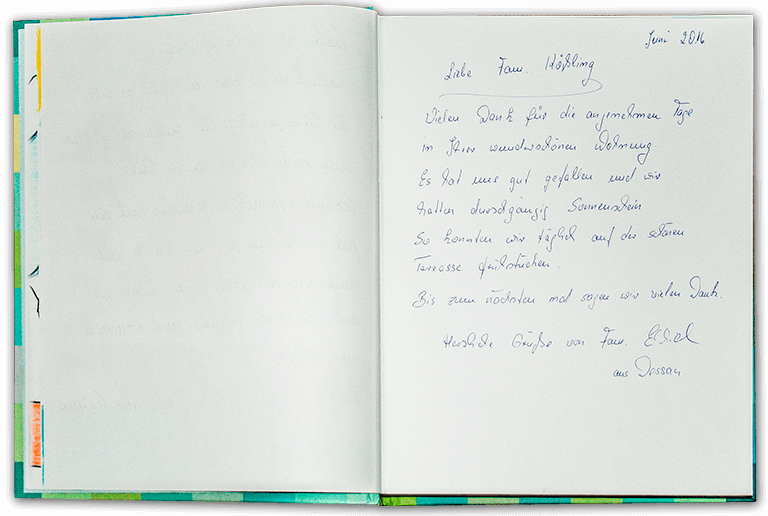 Juni 2016
Liebe Fam.
Vielen Dank für die angenehmen Tage
in Ihrer wunderschönen Wohnung.
Es hat uns gut gefallen und wir
hatten durchgängig Sonnenschein.
So konnten wir täglich auf der schönen
Terrasse frühstücken.
Bis zum nächsten mal sagen wir vielen Dank.
Herzliche Grüße von Fam.
aus Dessau